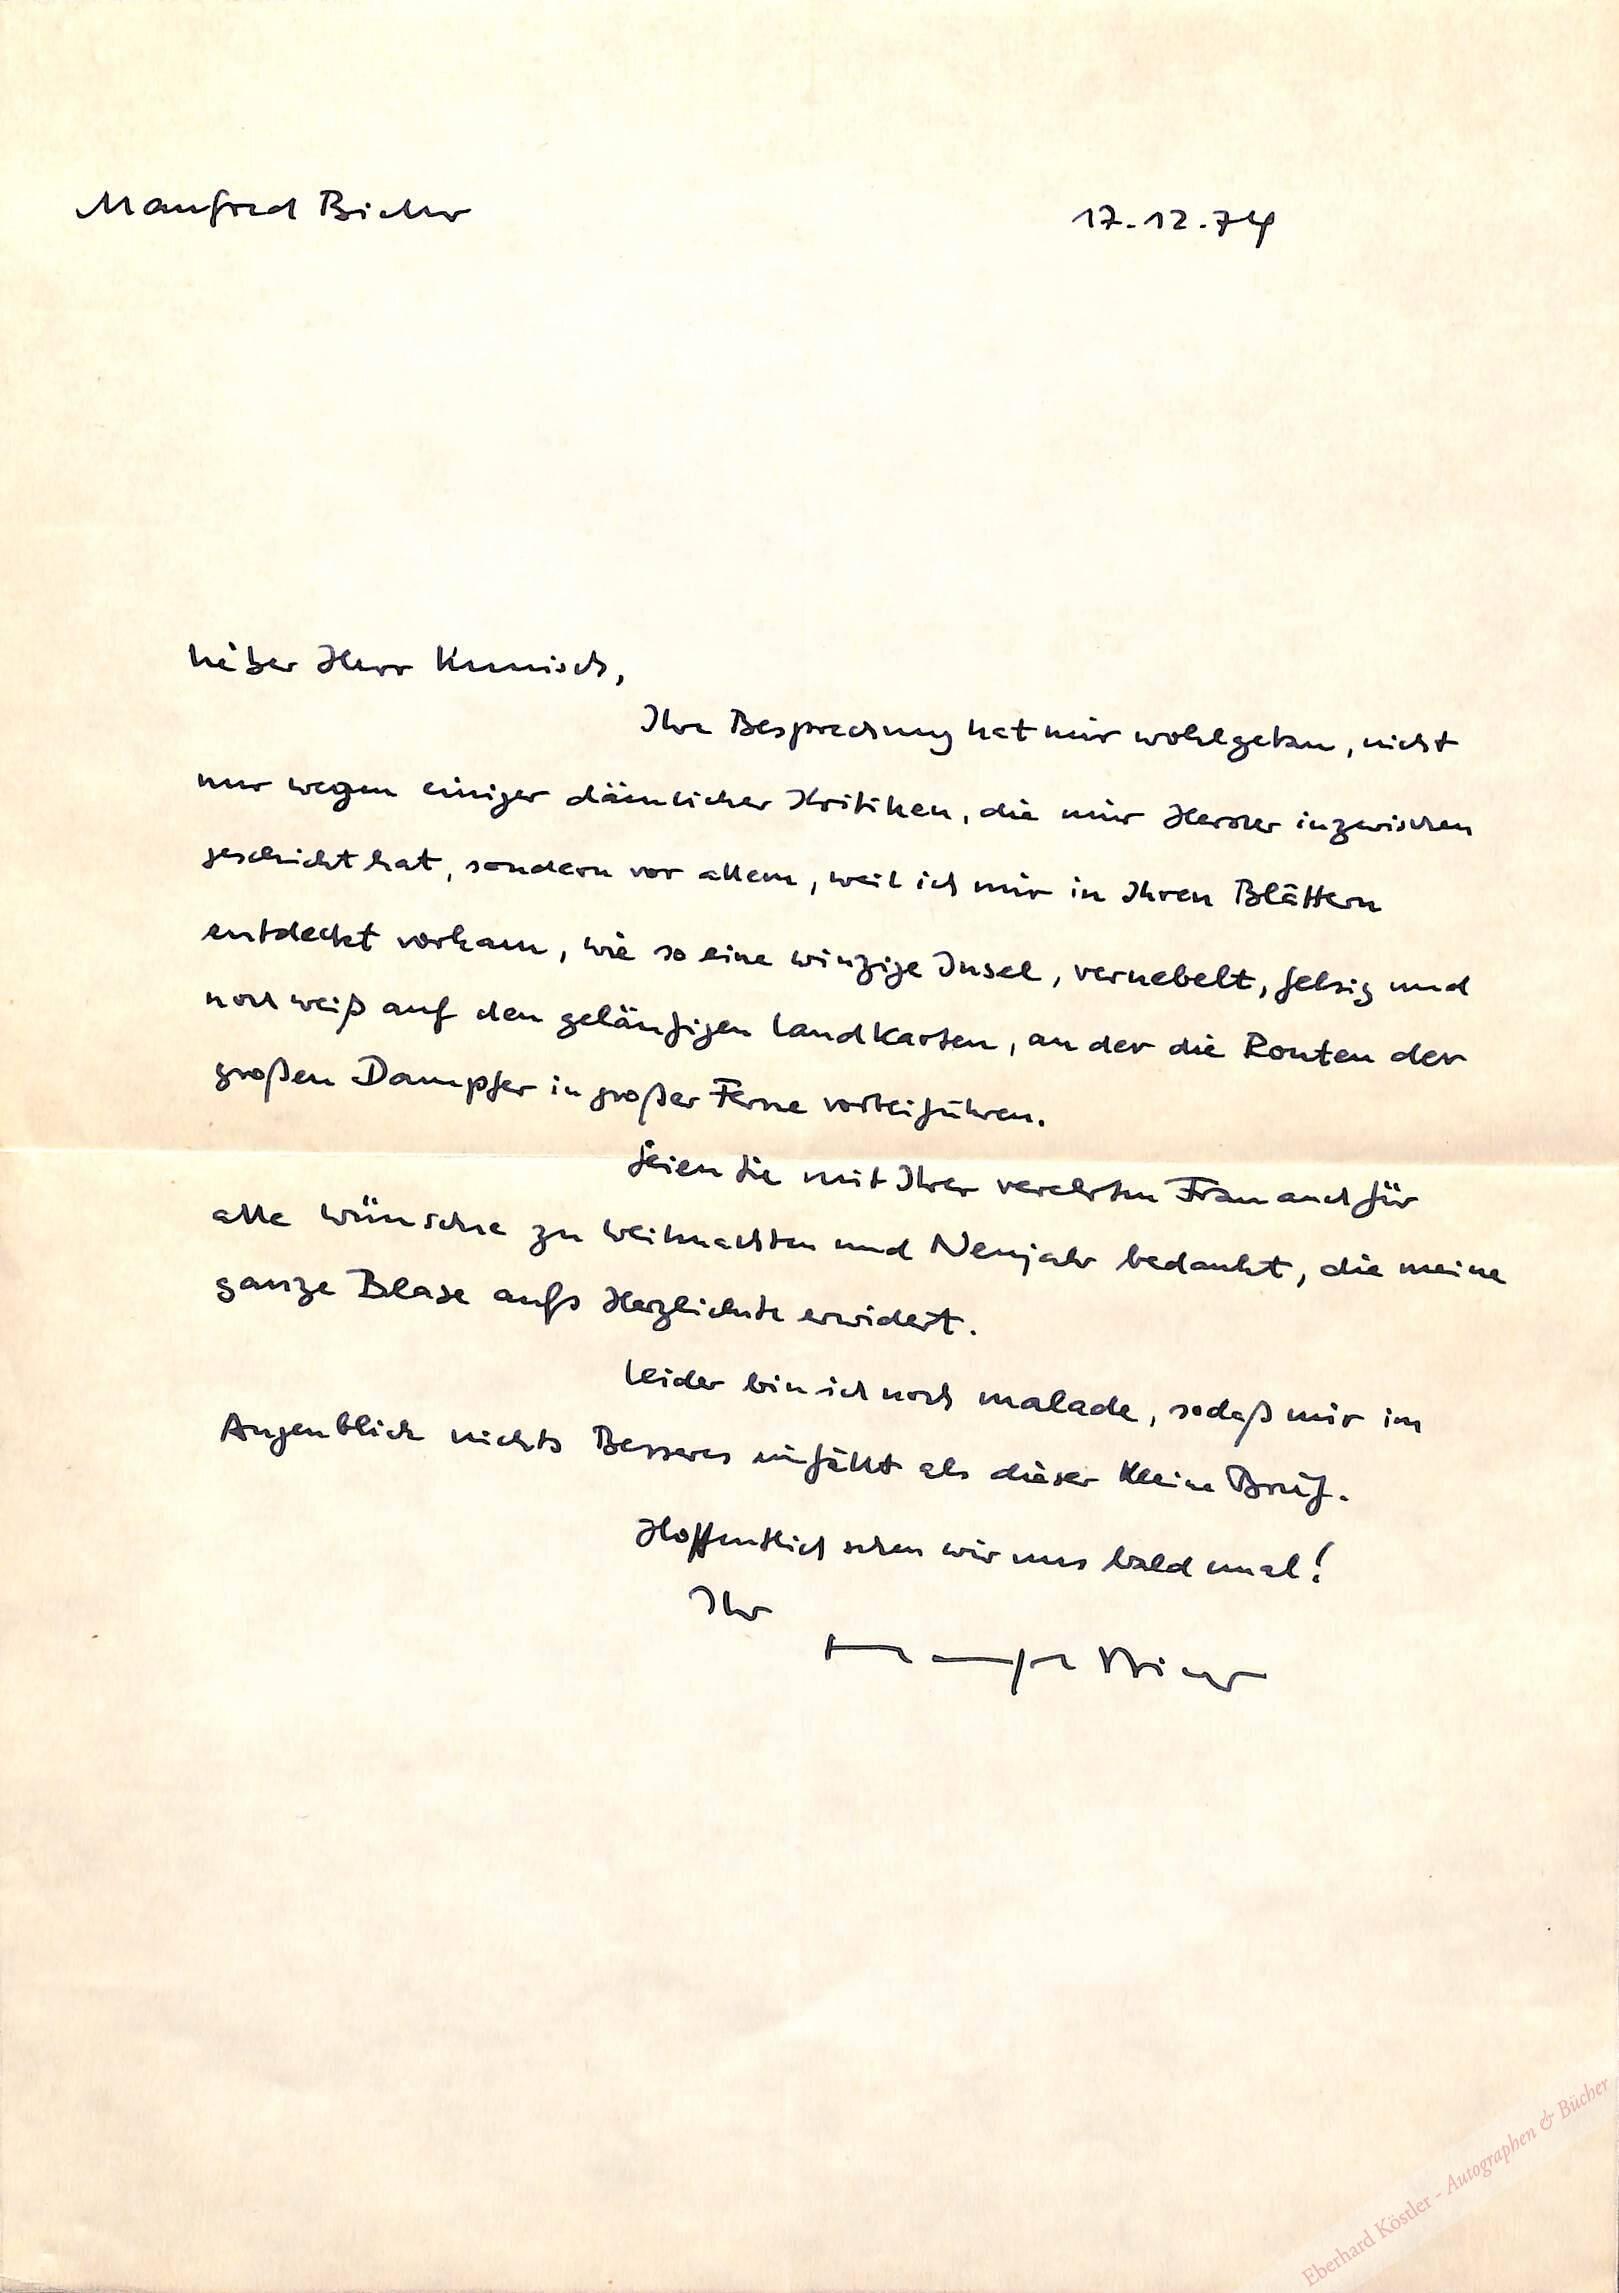 Manfred Bieler
17.12.74
Lieber Herr Kunisch,
Ihre Besprechung hat mir wohlgetan, nicht
nur wegen einiger dämlicher Kritiken, die mir Herder inzwischen
geschickt hat, sondern vor allem, weil ich mir in Ihren Blättern
entdeckt vorkam, wie so eine winzige Insel, vernebelt, felsig und
noch weiß auf den geläufigen Landkarten, an der die Routen der
großen Dampfer in großer Ferne vorbeiführen.
Seien Sie mit Ihrer verehrten Frau auch für
alle Wünsche zu Weihnachten und Neujahr bedankt, die meine
ganze Blase aufs Herzlichste erwidert.
Leider bin ich noch malade, sodaß mir im
Augenblick nichts Besseres einfällt als dieser kleine Brief.
Hoffentlich sehen wir uns bald mal!
Ihr
Manfred Bieler
Eberhard Köstler - Autographen & Bücher